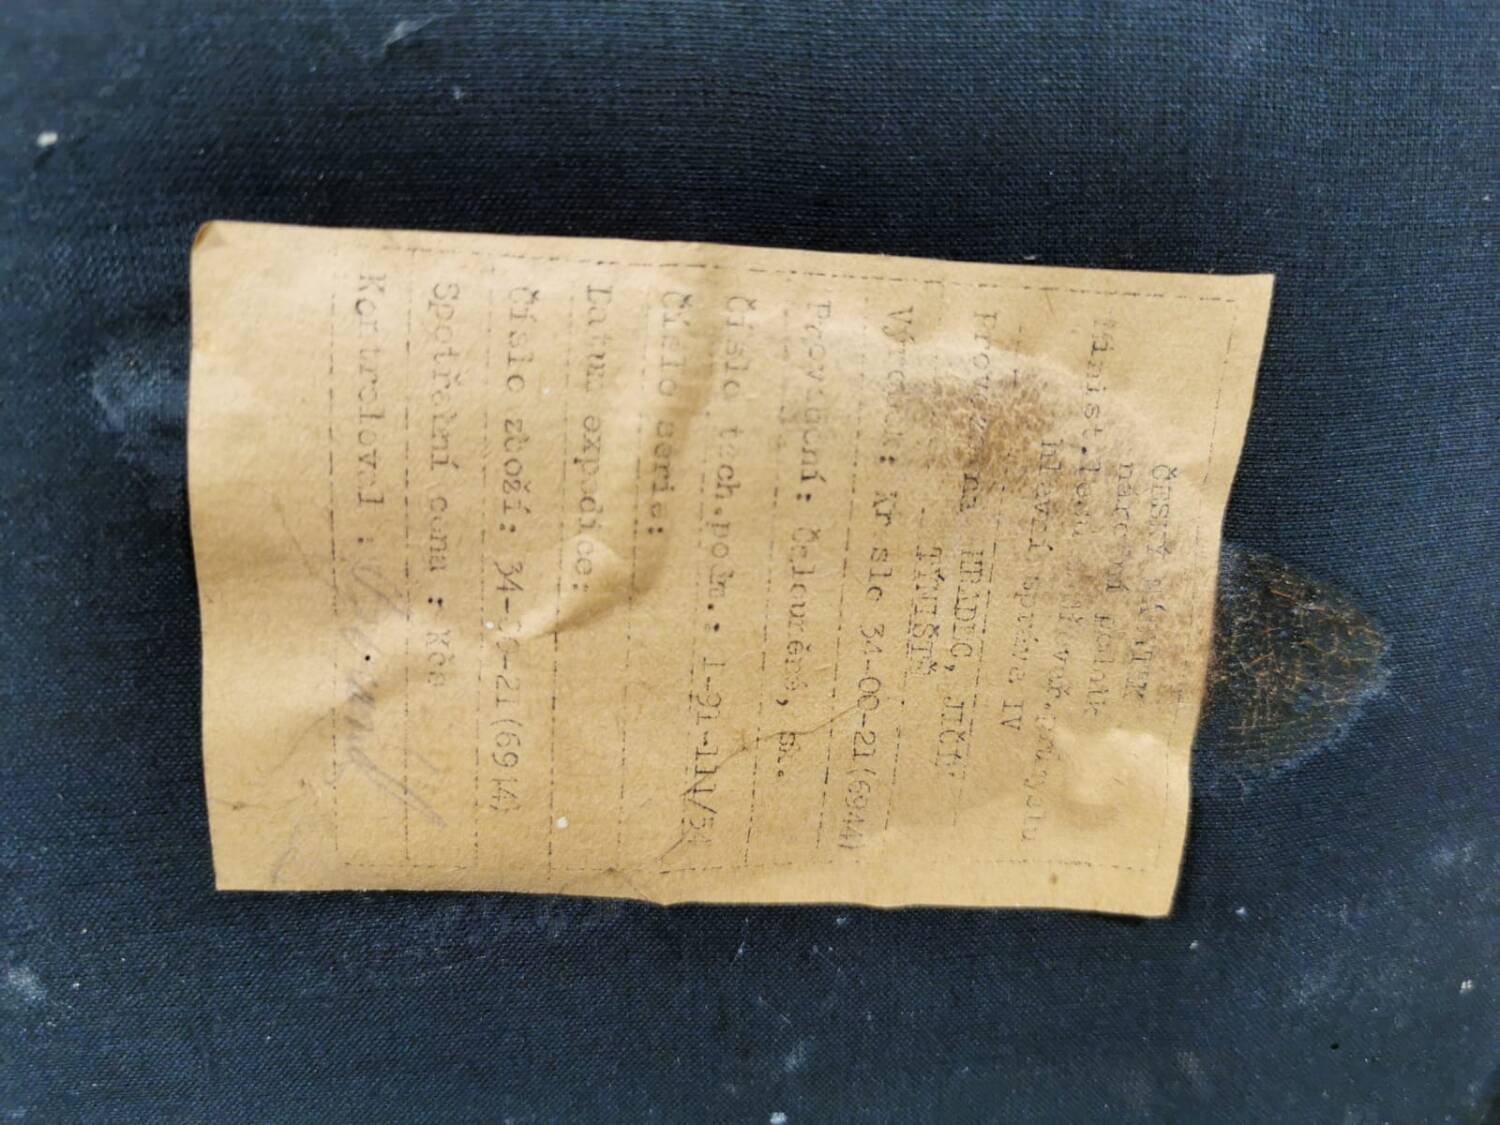 ČESKÝ NÁBYTEK
národní podnik
hlavní správa IV
Provozovna HRADEC, JIČÍN
TÝNIŠTĚ
Výrobek: Kreslo 34-00-21(6944)
Provedení: Čalouněné, sk.
Číslo tech.podm.: 1-91-111/54
Číslo serie:
Datum expedice:
Číslo zboží: 34-00-21(6944)
Spotřební cena : Kčs
Kontroloval :